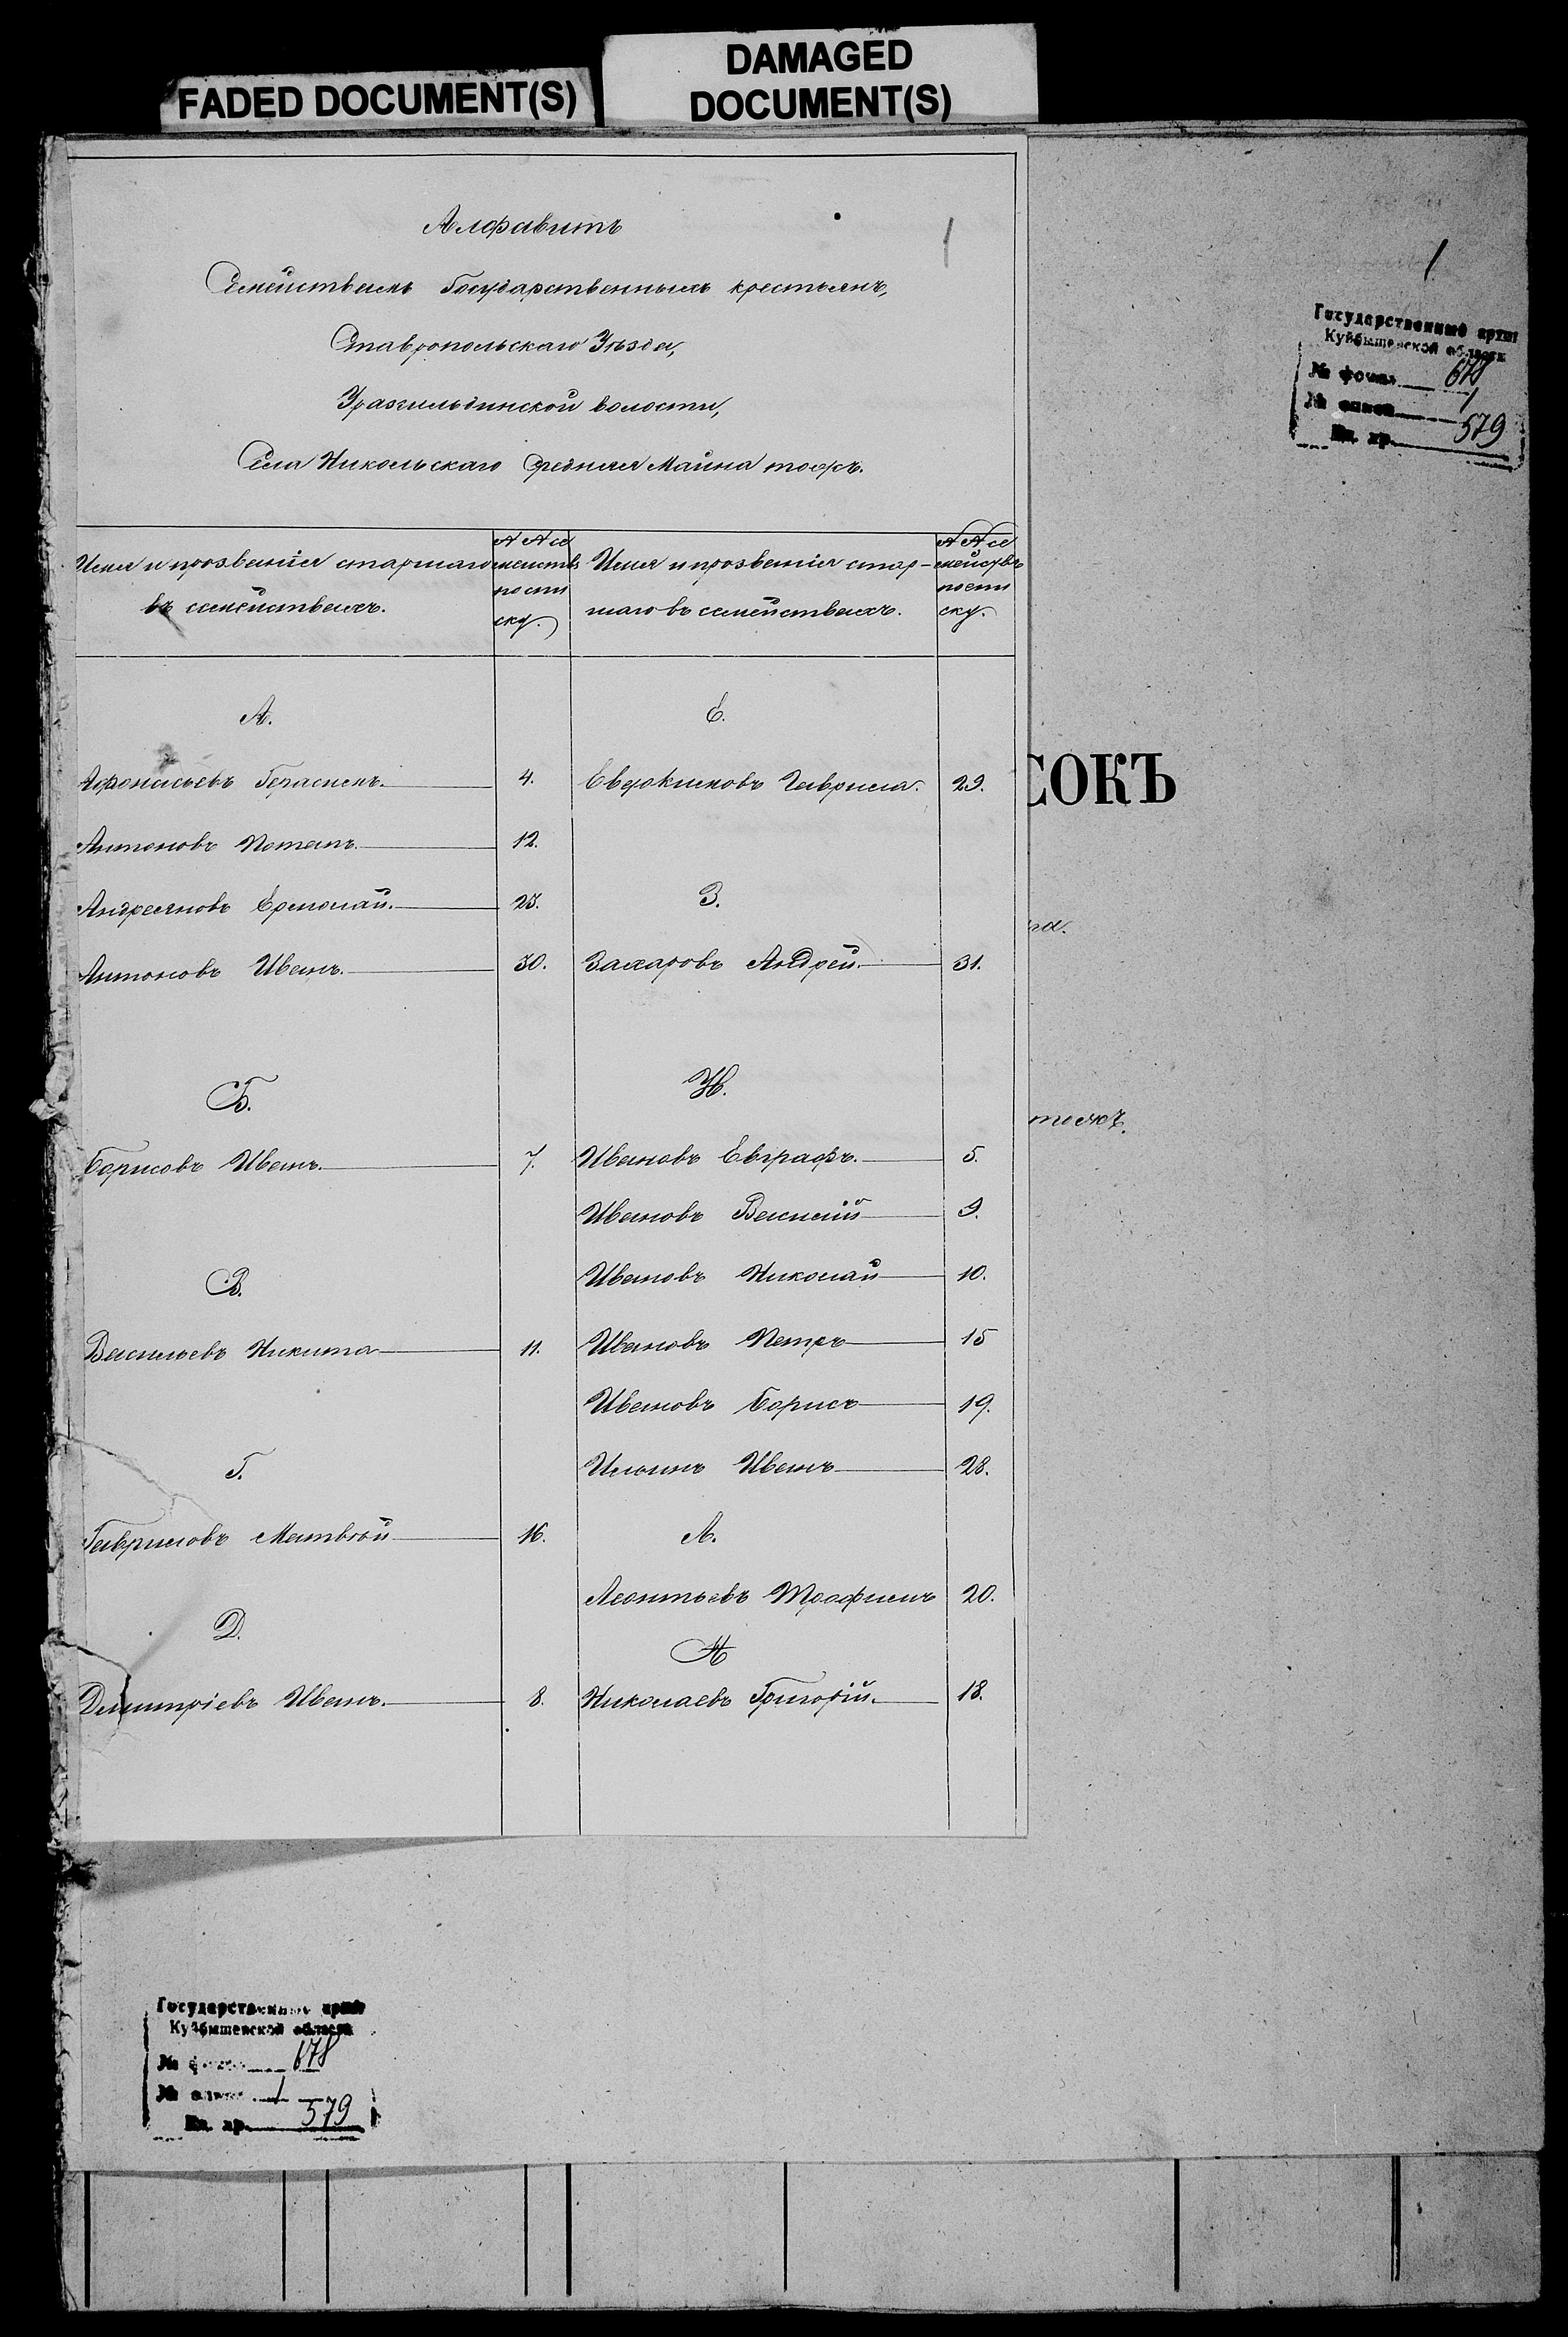 FADED DOCUMENT(S)
DAMAGED
DOCUMENT(S)
1
Алфавитъ
Семействамъ Государственныхъ крестьянъ,
Ставропольскаго Уѣзда,
Урайгильдинской волости,
Села Никольскаго Средняя Майна тожъ.
Имя и прозванія старшаго
въ семействахъ.
№№ се
мейства
по спи
ску.
Имя и прозванія стар-
шаго въ семействахъ.
№№ се
мействъ
по спи
ску.
А.
Афонасьевъ Герасимъ. 4.
Антоновъ Потапъ. 12.
Андреяновъ Ермолай. 23.
Антоновъ Иванъ. 30.
Б.
Борисовъ Иванъ. 7.
В.
Васильевъ Никита 11.
Г.
Гавриловъ Матвѣй 16.
Д.
Дмитріевъ Иванъ. 8.
Е.
Евдокимовъ Гаврила. 29.
З.
Захаровъ Андрей. 31.
И.
Ивановъ Евграфъ. 5.
Ивановъ Василій 9.
Ивановъ Николай 10.
Ивановъ Петръ 15
Ивановъ Борисъ 19.
Ильинъ Иванъ 28.
Л.
Леонтьевъ Трофимъ 20.
Н
Николаевъ Григорій. 18.
1
Государственный архив
Куйбышевской области
№ фонда 678
№ описи 1
Ед. хр. 579
СОКЪ
на.
тожъ.
Государственный архив
Куйбышевской области
№ фонда 678
№ описи 1
Ед. хр. 579